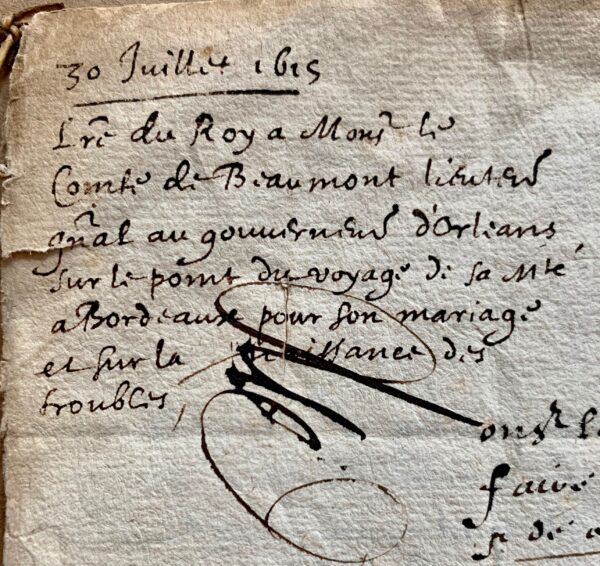 30 Juillet 1615
Lre du Roy a Monsr le
Comte de Beaumont lieutent
gnāl au gouvernent d'Orleans
sur le point du voyage de sa Mté
a Bordeaux pour son mariage
et sur la naissance des
troubles,
onsr l
faire
s de